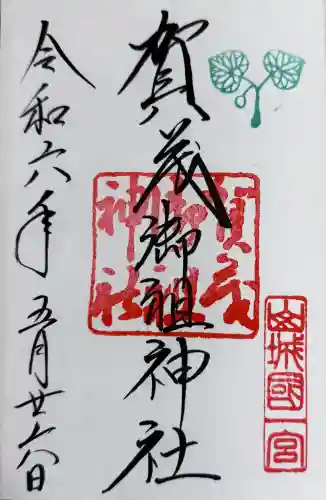 山城國一宮
賀茂御祖神社
賀茂御祖神社
令和六年五月廿六日